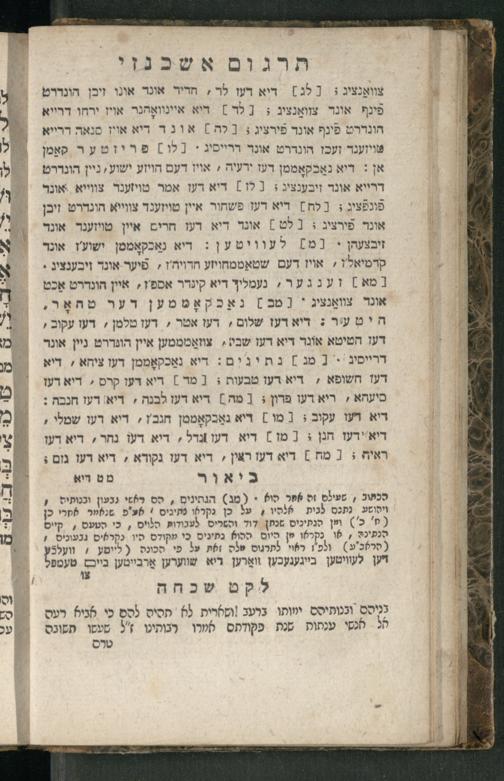 תרגום אשכנזי
צוואנציג; [לג] דיא דעז לד, חדיד אונד אונו זיבן הונדרט
פֿינף אונד צוואנציג; [לד] דיא איינוואָהנר אויז ירחו דרייא
הונדרט פֿינף אונד פֿירציג; [לה] אונד דיא אויז סנאה דרייא
טויזענד זעכז הונדרט אונד דרייסיג· [לו] פריזטער קאמן
אן: דיא נאכקאָממן דעז ידעיה, אויז דעם הויזע ישוע, ניין הונדרט
דרייא אונד זיבענציג; [לז] דיא דעז אמר טויזענד צווייא אונד
פֿונפֿציג; [לח] דיא דעז פשחור איין טויזענד צווייא הונדרט זיבן
אונד פֿירציג; [לט] אונד דיא דעז חרים איין טויזענד אונד
זיבצעהן· [מ] לעוויטען: דיא נאכקאָממן ישוע'ז אונד
קדמיאל'ז, אויז דעם שטאַממהויזע הדויה'ז, פֿיער אונד זיבענציג·
[מא] זענגער, נעמליך דיא קינדר אסף'ז, איין הונדרט אכט
אונד צוואנציג· [מב] נאכקאָממען דער טהאָר,
היטער: דיא דעז שלום, דעז אטר, דעז טלמן, דעז עקוב,
דעז חטיטא אונד דיא דעז שבי, צוזאמממען איין הונדרט ניין אונד
דרייסיג· [מג] נתינים: דיא נאכקאָממן דעז ציחא, דיא
דעז חשופא, דיא דעז טבעות; [מד] דיא דעז קרס, דיא דעז
סיעהא, דיא דעז פדון; [מה] דיא דעז לבנה, דיא דעז חגבה:
דיא דעז עקוב; [מו] דיא נאכקאָממן חגב'ז, דיא דעז שמלי,
דיא דעז חנן; [מז] דיא דעז גדל, דיא דעז גחר, דיא דעז
ראיה; [מח] דיא דעז רצין, דיא דעז נקודא, דיא דעז גזם;
ביאור
מט דיא
הכתוב, שעילם זה אחר הוא· (מג) הנתינים, הם ראשי גבעון ובנותיה,
ויהושע נתנם לבית אלהיו, על כן נקראו נתינים· אע"פ שנאמר אחרי כן
(ח' כ') ומן הנתינים שנתן דוד והשרים לעבודת הלוים, כי הטעם, קיים
הנתינה, או נקראו מן היום ההוא נתינים כי מקודם היו נקראים גבעונים,
(הראב"ע) ולפ"ז ראוי לתרגום מלה זאת על פי הכונה (לייטע, וועלכע
דען לעוויטען בייגעגעבען וואָרען דיא שווערען ארבייטען ביים טעמפל
צו
לקט שכחה
בניהם ובנותיהם ימותו ברעב ושארית לא תהיה להם כי אביא רעה
אל אנשי ענתות שנת פקודתם אמרו רבותינו ז"ל שעשו תשובה
טרם